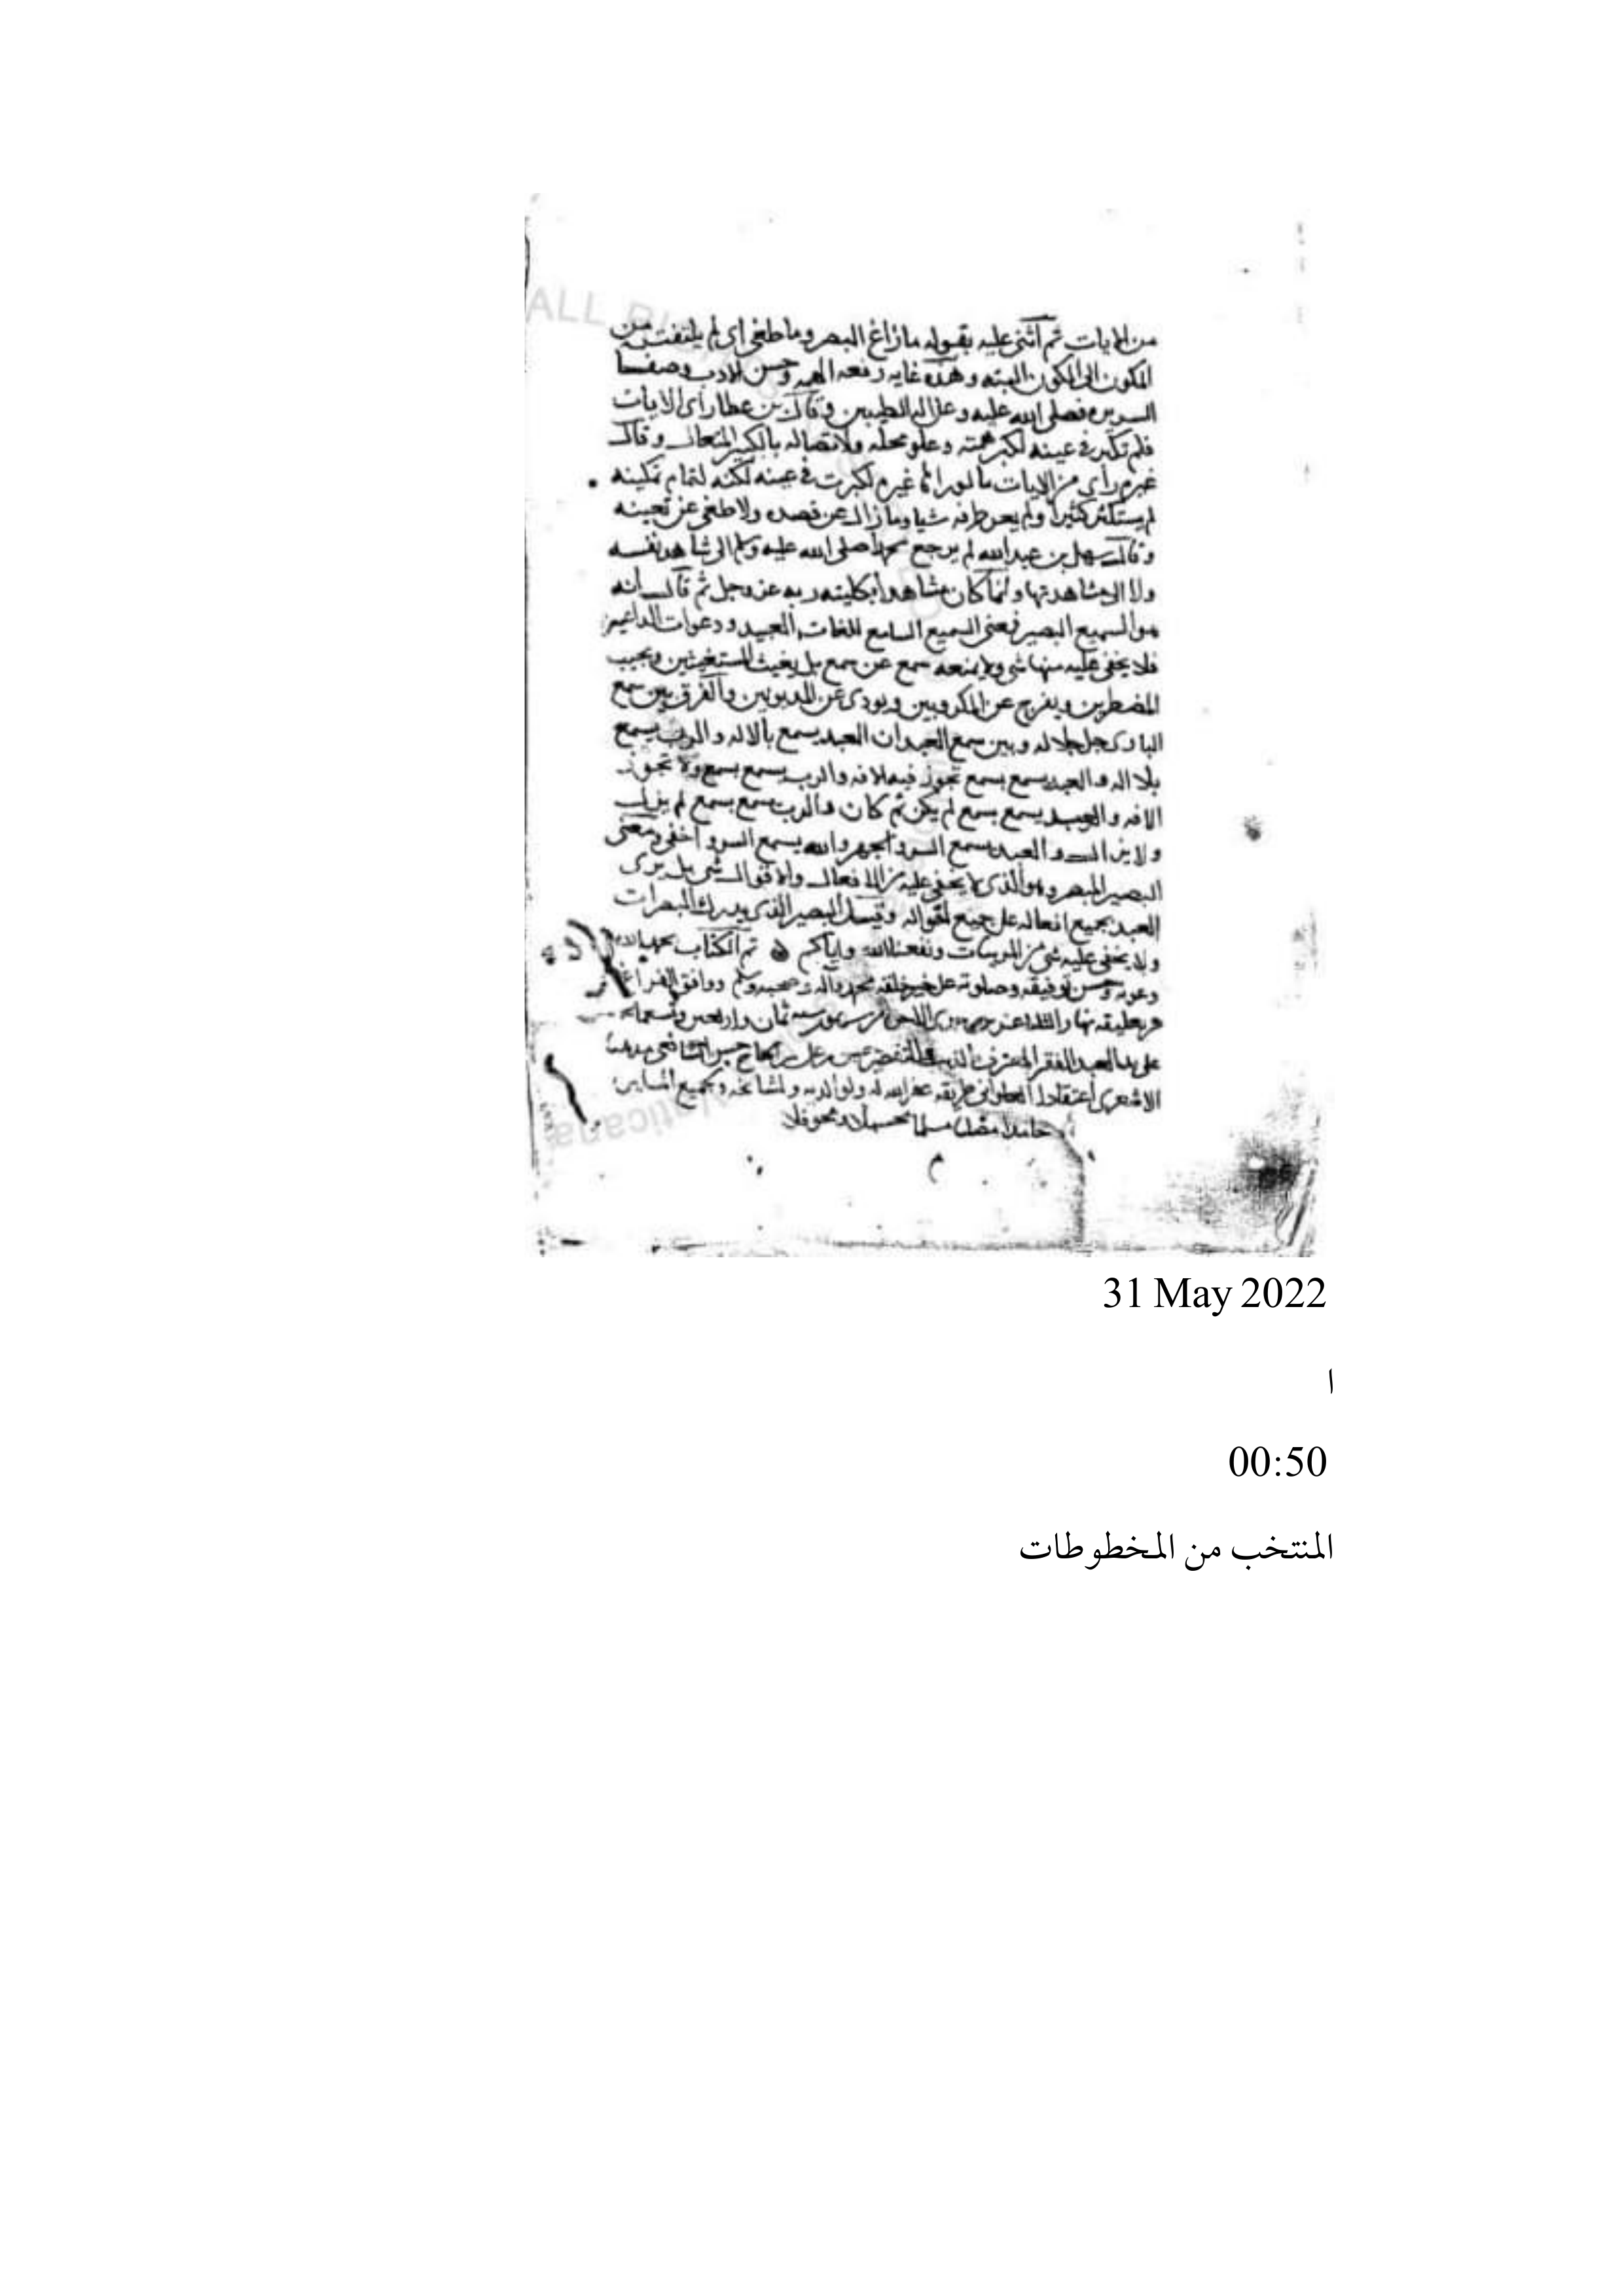 من الايات ثم اثنى عليه بقوله ما زاغ البصر وما طغى اى لم يلتفت من
المكون الى الكون البته وهذه غايه رفعه الهمه وحسن الادب وصفا
السريره فصلى الله عليه وعلى اله الطيبين وقال بن عطا راى الايات
فلم تكبر فى عينه لكبر همته وعلو محله ولاتصاله بالكبير المتعال وقال
غيره راى من الايات ما لو راها غيره لكبرت فى عينه لكنه لتمام تمكينه
لم يستكثر كثيرا ولم يعر طرفه شيا وما زال عن قصده ولا طغى عن تعيينه
وقال سهل بن عبد الله لم يرجع محمد صلى الله عليه وسلم الى شاهد نفسه
ولا الى مشاهدتها وانما كان مشاهدا بكليته ربه عز وجل ثم قال انه
هو السميع البصير فمعنى السميع السامع للغات العبيد ودعوات الداعين
فلا يخفى عليه منها شى ولا يمنعه سمع عن سمع بل يغيث المستغيثين ويجيب
المضطرين ويفرج عن المكروبين ويودى عن المديونين والفرق بين سمع
البارى جل جلاله وبين سمع العبد ان العبد يسمع بالاله والرب يسمع
بلا اله والعبد يسمع بسمع تجوز فيه الافه والرب يسمع بسمع ولا تجوز
الافه والعبد يسمع بسمع لم يكن ثم كان والرب يسمع بسمع لم يزل
ولا يزال والعبد يسمع السر والجهر والله يسمع السر واخفى ومعنى
البصير المبصر وهو الذى لا يخفى عليه من الافعال والاقوال شى بل يرى
العبد بجميع افعاله على جميع احواله وقيل البصير الذى يدرك المبصرات
ولا يخفى عليه شى من المريبات ونفعنا الله واياكم تم الكتاب بحمد الله
وعونه وحسن توفيقه وصلوته على خير خلقه محمد واله وصحبه وسلم ووافق الفراغ
نهار سنه ثمان واربعين وتسعمايه
على يد العبد الفقير المعترف بالذنب والتقصير بن على بن الحاج حسن الشافعى مذهبا
الاشعرى اعتقادا طريقه غفر الله له ولوالديه ولمشايخه ولجميع المسلمين
حامدا مصليا مسلما محسبلا ومحوقلا
م
31 May 2022
ا
00:50
المنتخب من المخطوطات